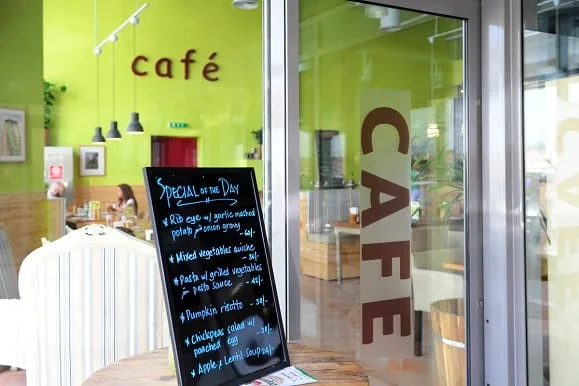 café
CAFE
SPECIAL OF THE DAY
* Rib eye w/ garlic mached
potato & onion gravy
- 60/-
* Mixed vegetables quiche
- 36/-
* Pasta w/ grilled vegetables
in pasta sauce - 45/-
* Pumpkin risotto - 38/-
* Chickpeas salad w/
poached egg - 38/-
* Apple & Lentil Soup 24/-